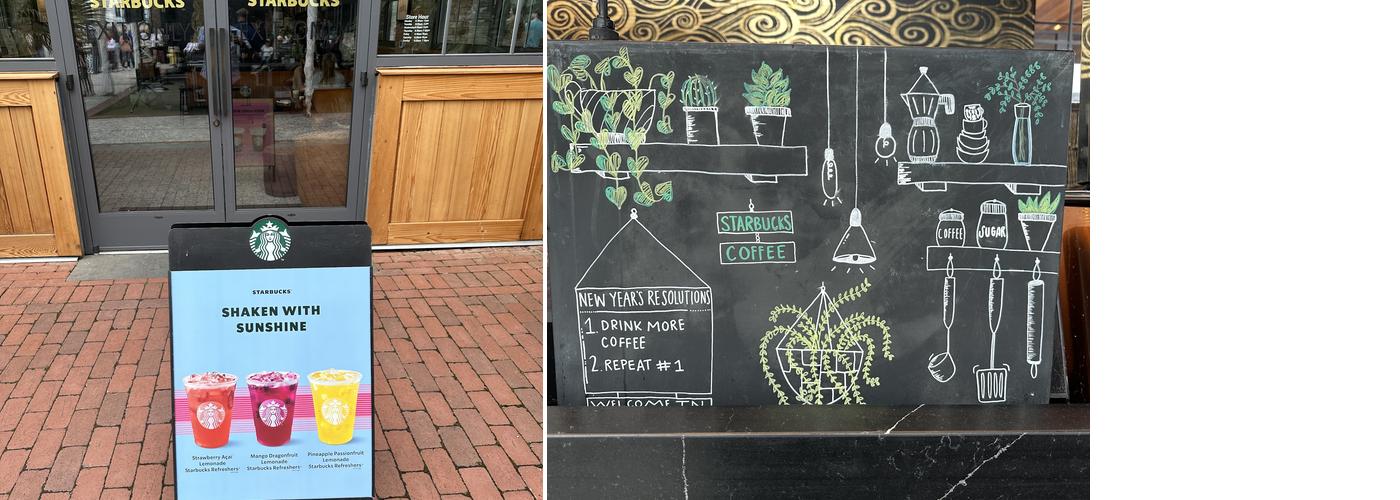 STARBUCKS
STARBUCKS
Store Hour
STARBUCKS
SHAKEN WITH
SUNSHINE
Strawberry Açaí
Lemonade
Starbucks Refreshers
Mango Dragonfruit
Lemonade
Starbucks Refreshers
Pineapple Passionfruit
Lemonade
Starbucks Refreshers
STARBUCKS
&
COFFEE
COFFEE
SUGAR
NEW YEAR'S RESOLUTIONS
1. DRINK MORE
COFFEE
2. REPEAT #1
WELCOME TN